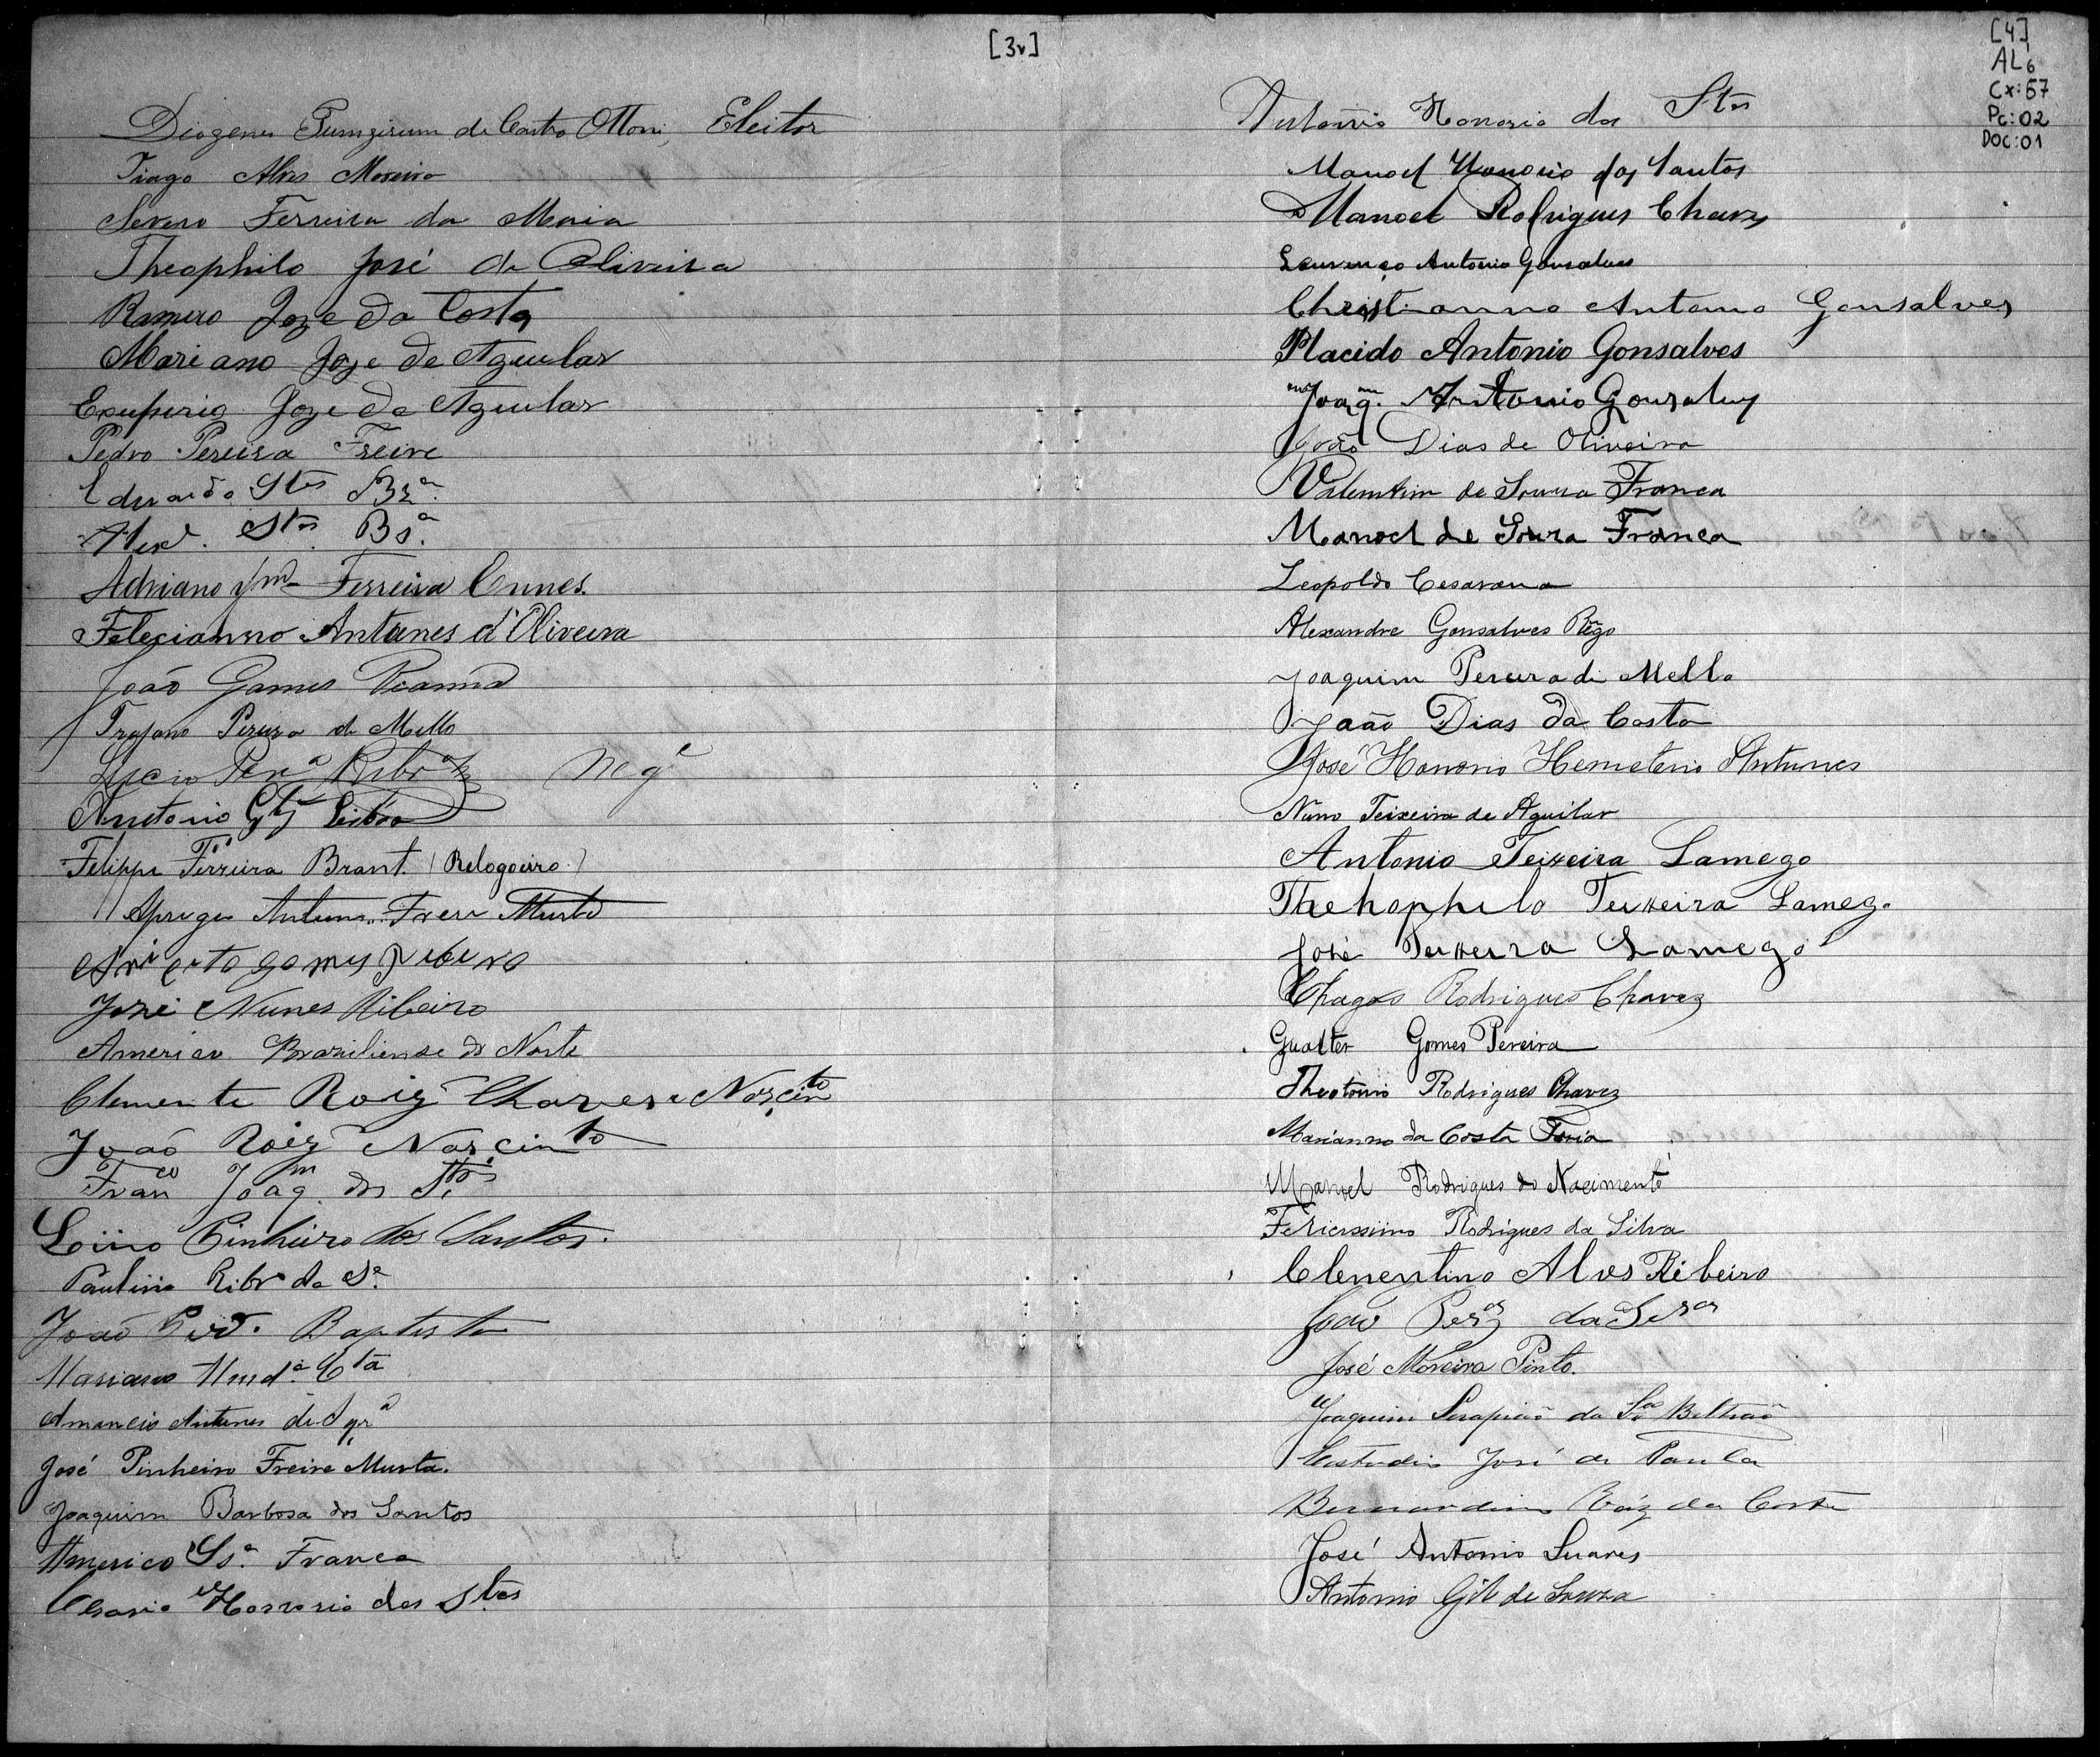 [3v]
Diogenes de Castro Ottoni, Eleitor
Tiago Alves Moreira
Severo Ferreira da Maia
Theophilo José de Oliveira
Ramiro Joze da Costa
Mariano Joze de Aguilar
Exuperio Joze de Aguilar
Pedro Pereira Freire
Eduardo Stos Bza.
Alexe. Stos. Bsa.
Adriano Ferreira Cunnes.
Felecianno Antunes d'Oliveira
João Gomes
Trajano Pereira de Mello
Lucio Pera Ribro Nege
Antonio Lisboa
Felippe Ferreira Brant. (Relogoeiro.)
Antunes Freire Murta
gomes Ribeiro
José Nunes Ribeiro
Americo Braziliense do Norte
Clemente Roiz Chaves e Nascinto
João Roiz Nascinto
Franco Joaqm dos Stos
Pinheiro dos Santos.
Paulino Ribro da Sa.
João Baptista
Mariano Cta
Amancio Antunes de
José Pinheiro Freire Murta.
Joaquim Barbosa dos Santos
Americo Ssa. Franca
Honorio dos Stos
[4]
AL6
Cx:57
Pc:02
Doc:01
Antonio Honorio dos Stos
Manoel Honorio dos Santos
Manoel Rodrigues Chaves
Lourenço Antonio Gonsalves
Christianno Antonio Gonsalves
Placido Antonio Gonsalves
Joaqm. Antonio Gonsalves
João Dias de Oliveira
Valentim de Souza Franca
Manoel de Souza Franca
Leopoldo Cesarana
Alexandre Gonsalves Rêgo
Joaquim Pereira de Mello
João Dias da Costa
José Honorio Hemeterio Antunes
Nuno Teixeira de Aguilar
Antonio Teixeira Lamego
Thehophilo Teixeira Lamego
José Teixeira Lamego
Chagas Rodrigues Chavez
Gualter Gomes Pereira
Theotonio Rodrigues Chavez
Marianno da Costa Faria
Manoel Rodrigues do Nacimento
Rodrigues da Silva
Clenentino Alves Ribeiro
João
José Moreira Pinto.
Joaquim Serapião da Sa Beltrão
Custodio José de Paula
Bernardino Váz da Costa
José Antonio Suares
Antonio Gil de Souza